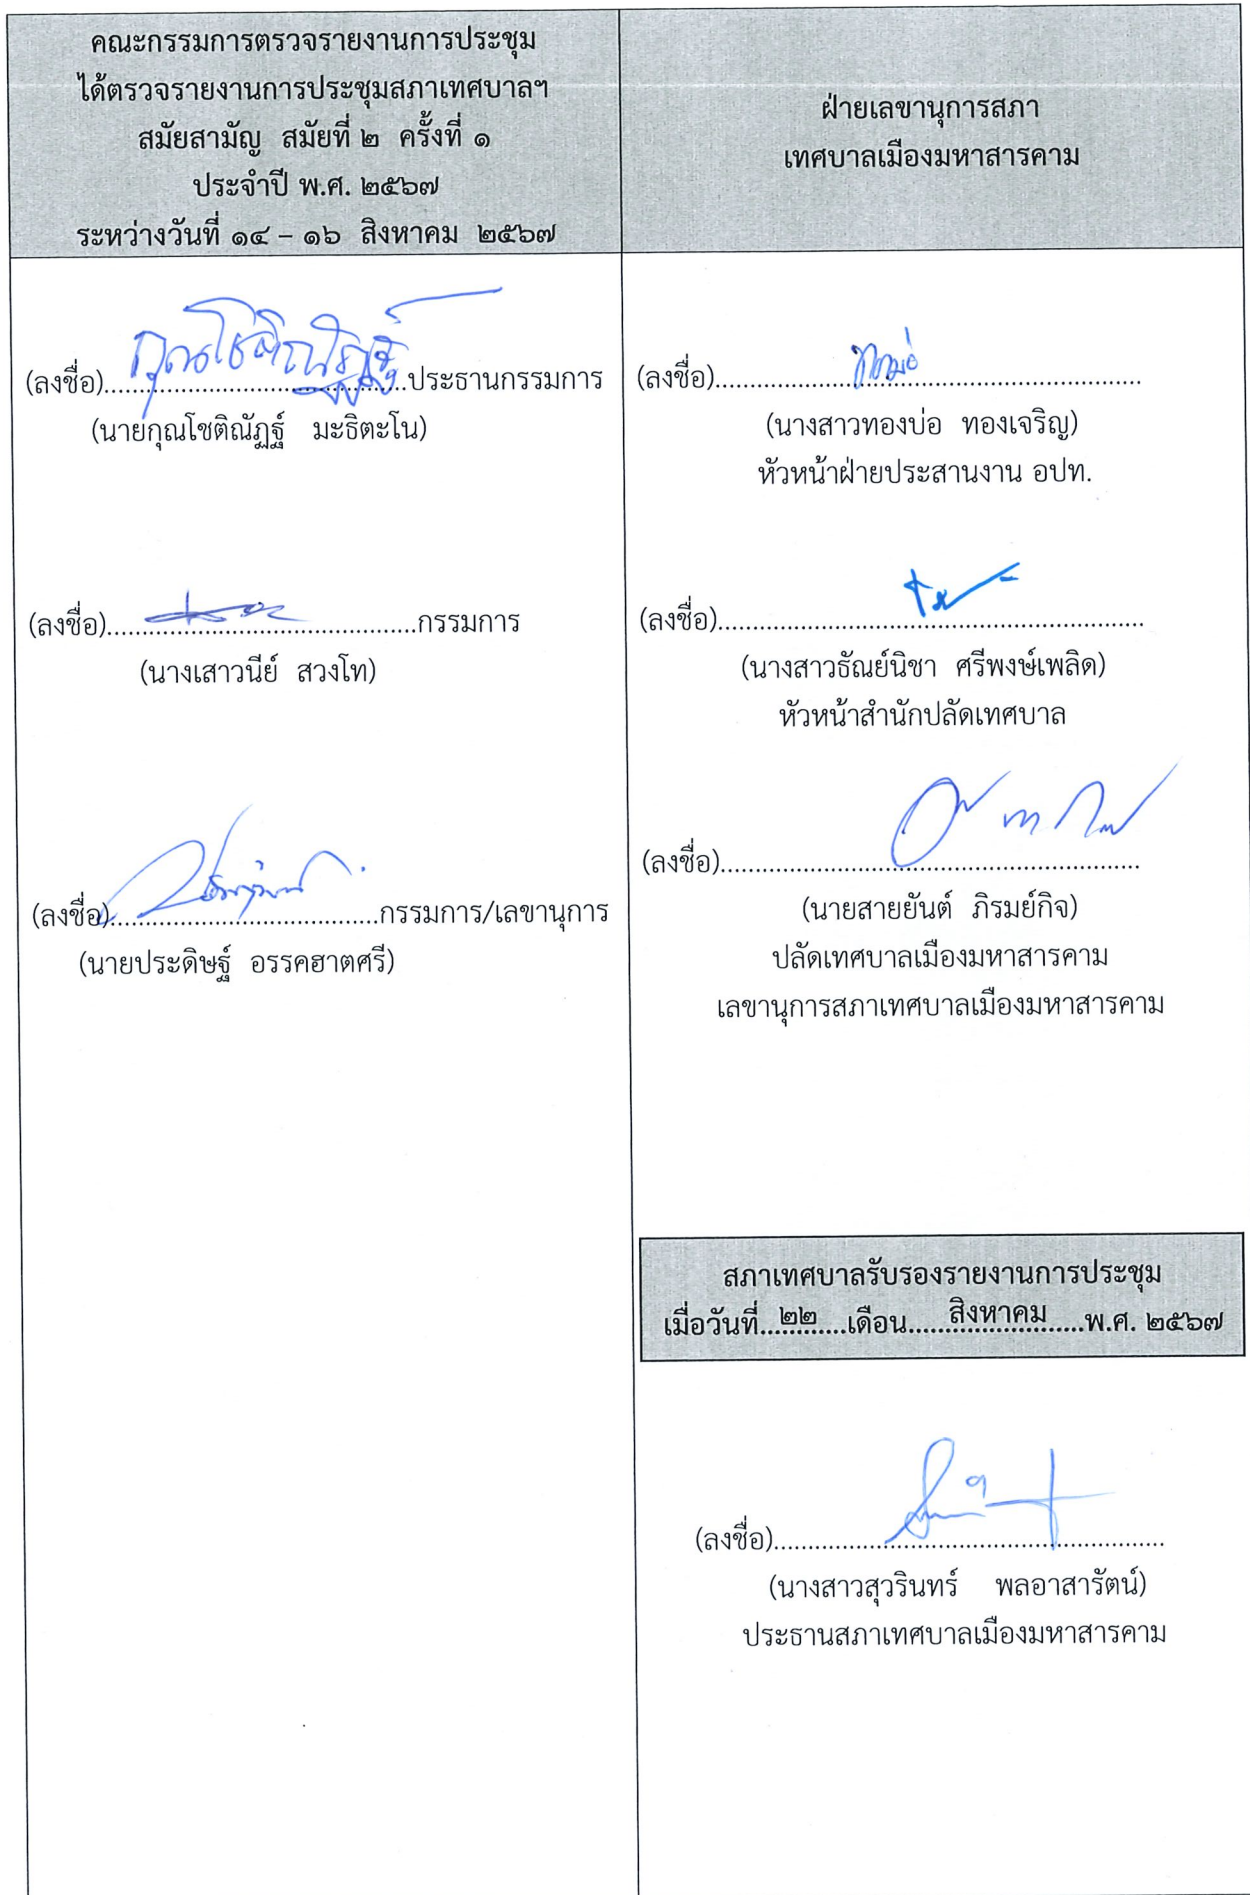 คณะกรรมการตรวจรายงานการประชุม
ได้ตรวจรายงานการประชุมสภาเทศบาลฯ
สมัยสามัญ สมัยที่ ๒ ครั้งที่ ๑
ประจำปี พ.ศ. ๒๕๖๗
ระหว่างวันที่ ๑๔ – ๑๖ สิงหาคม ๒๕๖๗
(ลงชื่อ)..........ประธานกรรมการ
(นายกุณโชติณัฏฐ์ มะธิตะโน)
(ลงชื่อ)..........กรรมการ
(นางเสาวนีย์ สวงโท)
(ลงชื่อ)..........กรรมการ/เลขานุการ
(นายประดิษฐ์ อรรคฮาตศรี)
ฝ่ายเลขานุการสภา
เทศบาลเมืองมหาสารคาม
(ลงชื่อ)..........ทองบ่อ..........
(นางสาวทองบ่อ ทองเจริญ)
หัวหน้าฝ่ายประสานงาน อปท.
(ลงชื่อ)....................
(นางสาวธัณย์นิชา ศรีพงษ์เพลิด)
หัวหน้าสำนักปลัดเทศบาล
(ลงชื่อ)....................
(นายสายยันต์ ภิรมย์กิจ)
ปลัดเทศบาลเมืองมหาสารคาม
เลขานุการสภาเทศบาลเมืองมหาสารคาม
สภาเทศบาลรับรองรายงานการประชุม
เมื่อวันที่...๒๒....เดือน.....สิงหาคม.....พ.ศ. ๒๕๖๗
(ลงชื่อ)....................
(นางสาวสุวรินทร์ พลอาสารัตน์)
ประธานสภาเทศบาลเมืองมหาสารคาม